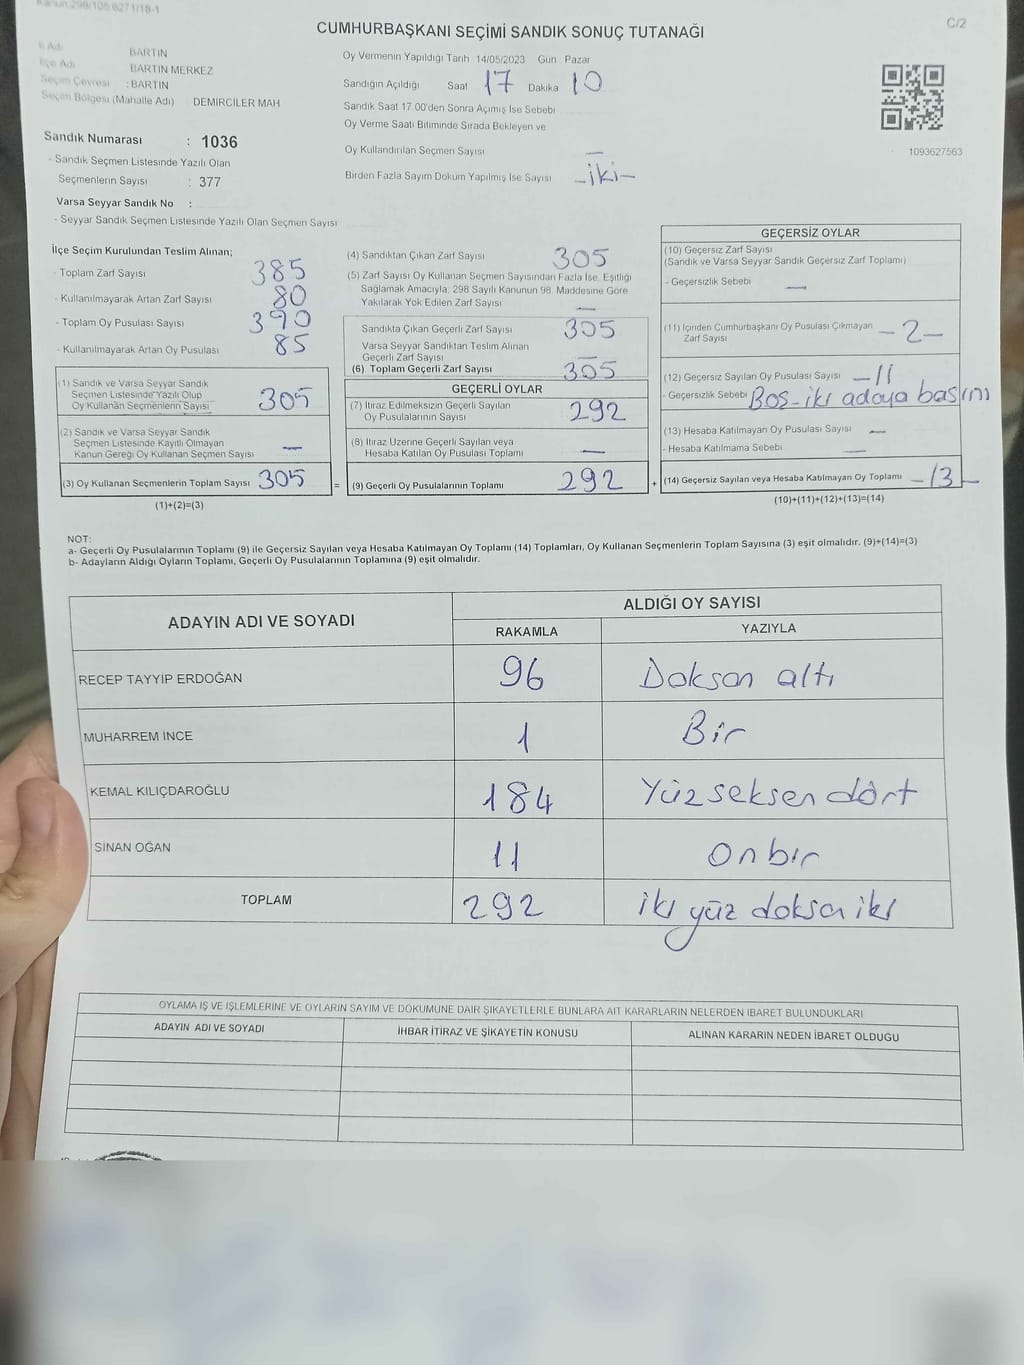 Kanun:298/105 6271/18-1
C/2
CUMHURBAŞKANI SEÇİMİ SANDIK SONUÇ TUTANAĞI
İl Adı BARTIN
İlçe Adı BARTIN MERKEZ
Seçim Çevresi : BARTIN
Seçim Bölgesi (Mahalle Adı) DEMİRCİLER MAH
Sandık Numarası : 1036
- Sandık Seçmen Listesinde Yazılı Olan
Seçmenlerin Sayısı : 377
Varsa Seyyar Sandık No :
- Seyyar Sandık Seçmen Listesinde Yazılı Olan Seçmen Sayısı
Oy Vermenin Yapıldığı Tarih 14/05/2023 Gün Pazar
Sandığın Açıldığı Saat 17 Dakika 10
Sandık Saat 17.00'den Sonra Açılmış İse Sebebi
Oy Verme Saati Bitiminde Sırada Bekleyen ve
Oy Kullandırılan Seçmen Sayısı —
Birden Fazla Sayım Döküm Yapılmış İse Sayısı -iki-
1093627563
İlçe Seçim Kurulundan Teslim Alınan;
- Toplam Zarf Sayısı 385
- Kullanılmayarak Artan Zarf Sayısı 80
- Toplam Oy Pusulası Sayısı 390
- Kullanılmayarak Artan Oy Pusulası 85
(1) Sandık ve Varsa Seyyar Sandık
Seçmen Listesinde Yazılı Olup
Oy Kullanan Seçmenlerin Sayısı 305
(2) Sandık ve Varsa Seyyar Sandık
Seçmen Listesinde Kayıtlı Olmayan
Kanun Gereği Oy Kullanan Seçmen Sayısı —
(3) Oy Kullanan Seçmenlerin Toplam Sayısı 305
(1)+(2)=(3)
=
(4) Sandıktan Çıkan Zarf Sayısı 305
(5) Zarf Sayısı Oy Kullanan Seçmen Sayısından Fazla İse, Eşitliği
Sağlamak Amacıyla, 298 Sayılı Kanunun 98. Maddesine Göre
Yakılarak Yok Edilen Zarf Sayısı —
Sandıkta Çıkan Geçerli Zarf Sayısı 305
Varsa Seyyar Sandıktan Teslim Alınan
Geçerli Zarf Sayısı —
(6) Toplam Geçerli Zarf Sayısı 305
GEÇERLİ OYLAR
(7) İtiraz Edilmeksizin Geçerli Sayılan
Oy Pusulalarının Sayısı 292
(8) İtiraz Üzerine Geçerli Sayılan veya
Hesaba Katılan Oy Pusulası Toplamı —
(9) Geçerli Oy Pusulalarının Toplamı 292
+
GEÇERSİZ OYLAR
(10) Geçersiz Zarf Sayısı
(Sandık ve Varsa Seyyar Sandık Geçersiz Zarf Toplamı)
- Geçersizlik Sebebi —
(11) İçinden Cumhurbaşkanı Oy Pusulası Çıkmayan
Zarf Sayısı -2-
(12) Geçersiz Sayılan Oy Pusulası Sayısı -11
- Geçersizlik Sebebi Boş-iki adaya basımı
(13) Hesaba Katılmayan Oy Pusulası Sayısı —
- Hesaba Katılmama Sebebi —
(14) Geçersiz Sayılan veya Hesaba Katılmayan Oy Toplamı -13-
(10)+(11)+(12)+(13)=(14)
NOT:
a- Geçerli Oy Pusulalarının Toplamı (9) ile Geçersiz Sayılan veya Hesaba Katılmayan Oy Toplamı (14) Toplamları, Oy Kullanan Seçmenlerin Toplam Sayısına (3) eşit olmalıdır. (9)+(14)=(3)
b- Adayların Aldığı Oyların Toplamı, Geçerli Oy Pusulalarının Toplamına (9) eşit olmalıdır.
ADAYIN ADI VE SOYADI
ALDIĞI OY SAYISI
RAKAMLA YAZIYLA
RECEP TAYYIP ERDOĞAN 96 Doksan altı
MUHARREM İNCE 1 Bir
KEMAL KILIÇDAROĞLU 184 Yüzseksen dört
SİNAN OĞAN 11 Onbir
TOPLAM 292 iki yüz doksan iki
OYLAMA İŞ VE İŞLEMLERİNE VE OYLARIN SAYIM VE DÖKÜMÜNE DAİR ŞİKAYETLERLE BUNLARA AİT KARARLARIN NELERDEN İBARET BULUNDUKLARI
ADAYIN ADI VE SOYADI İHBAR İTİRAZ VE ŞİKAYETİN KONUSU ALINAN KARARIN NEDEN İBARET OLDUĞU